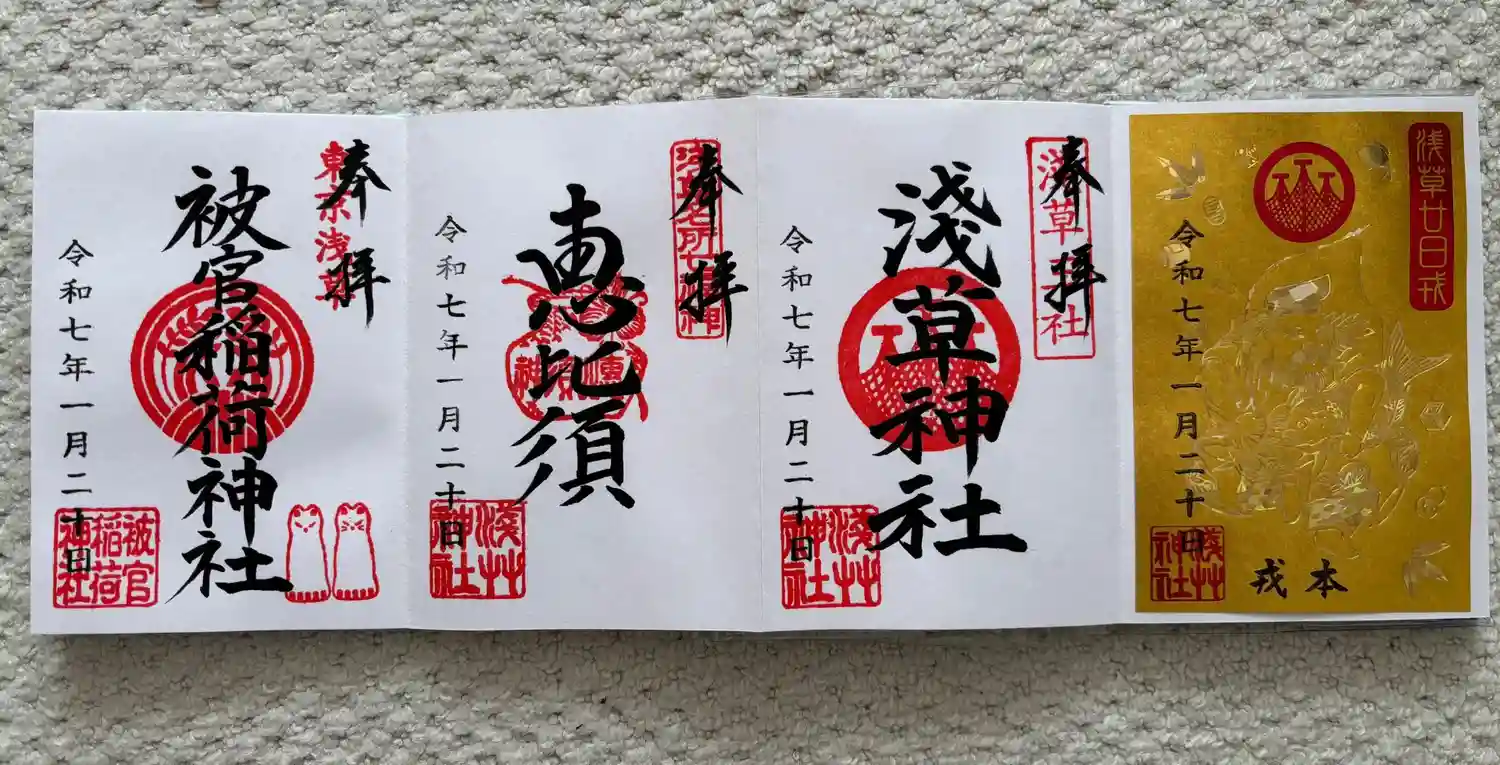 浅草廿日戎
令和七年一月二十日
浅草神社
本戎
奉拝
淺草神社
浅草神社
令和七年一月二十日
淺草神社
奉拝
浅草名所七福神
恵比須
令和七年一月二十日
淺草神社
奉拝
東京浅草
被官稲荷神社
令和七年一月二十日
被官稲荷神社